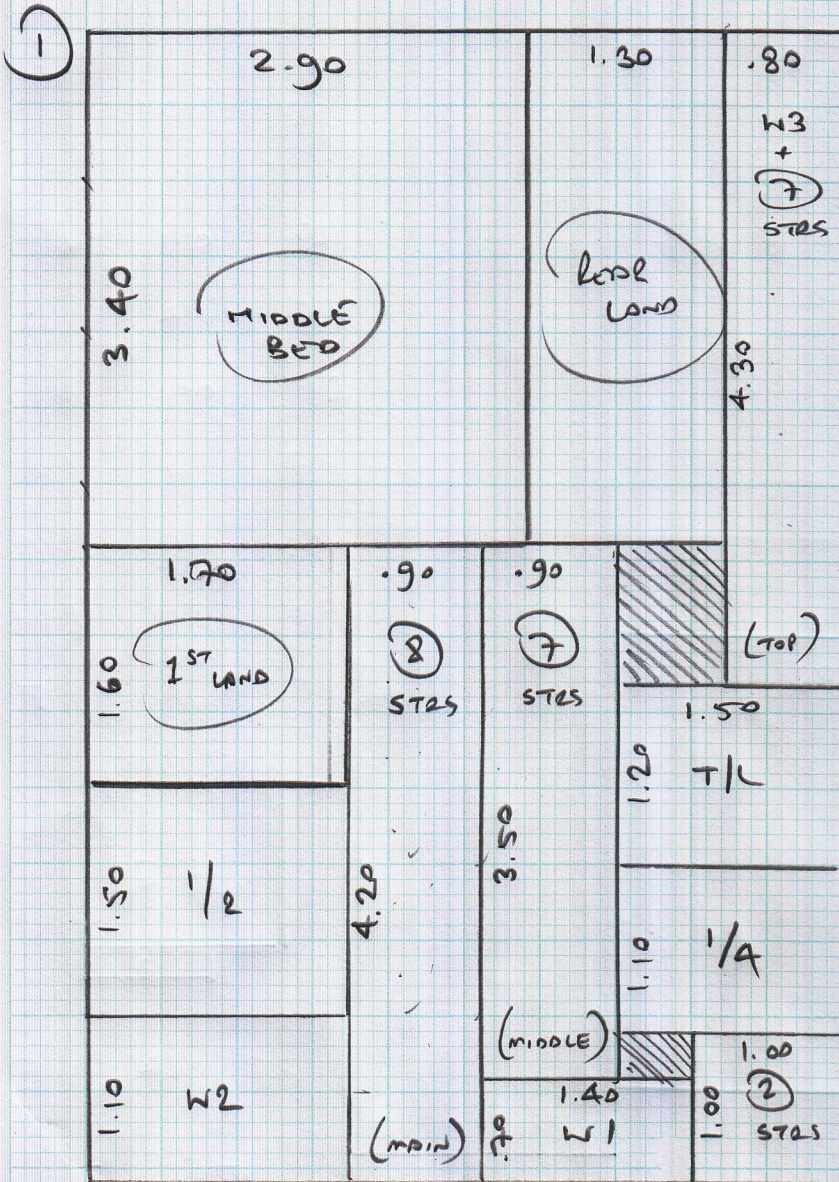 1
2.90
1.30
.80
W3
+
7
STRS
3.40
MIDDLE
BED
REAR
LAND
4.30
1.70
.90
.90
1.60
1ST LAND
8
STRS
7
STRS
(TOP)
1.50
1.20
T/L
1.50
1/2
4.20
3.50
1.10
1/4
(MIDDLE)
1.10
W2
(MAIN)
1.40
.70
W1
1.00
1.00
2
STRS